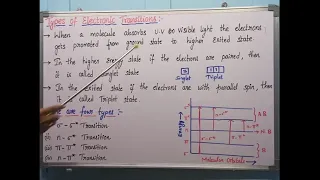 Types of Electronic Transitions:-
→ When a molecule absorbs U.V or visible light the electrons
gets promoted from ground state to higher Exited state.
→ In the higher energy state if the electrons are paired, then
it is called singlet state
Singlet Triplet
→ In the Exited state if the electrons are with parallel spin, then
it is called Triplet state.
are four types:-
σ - σ* Transition
n - σ* Transition
π - π* Transition
n - π* Transition
Energy
A.B
N.B
B
Molecular Orbitals